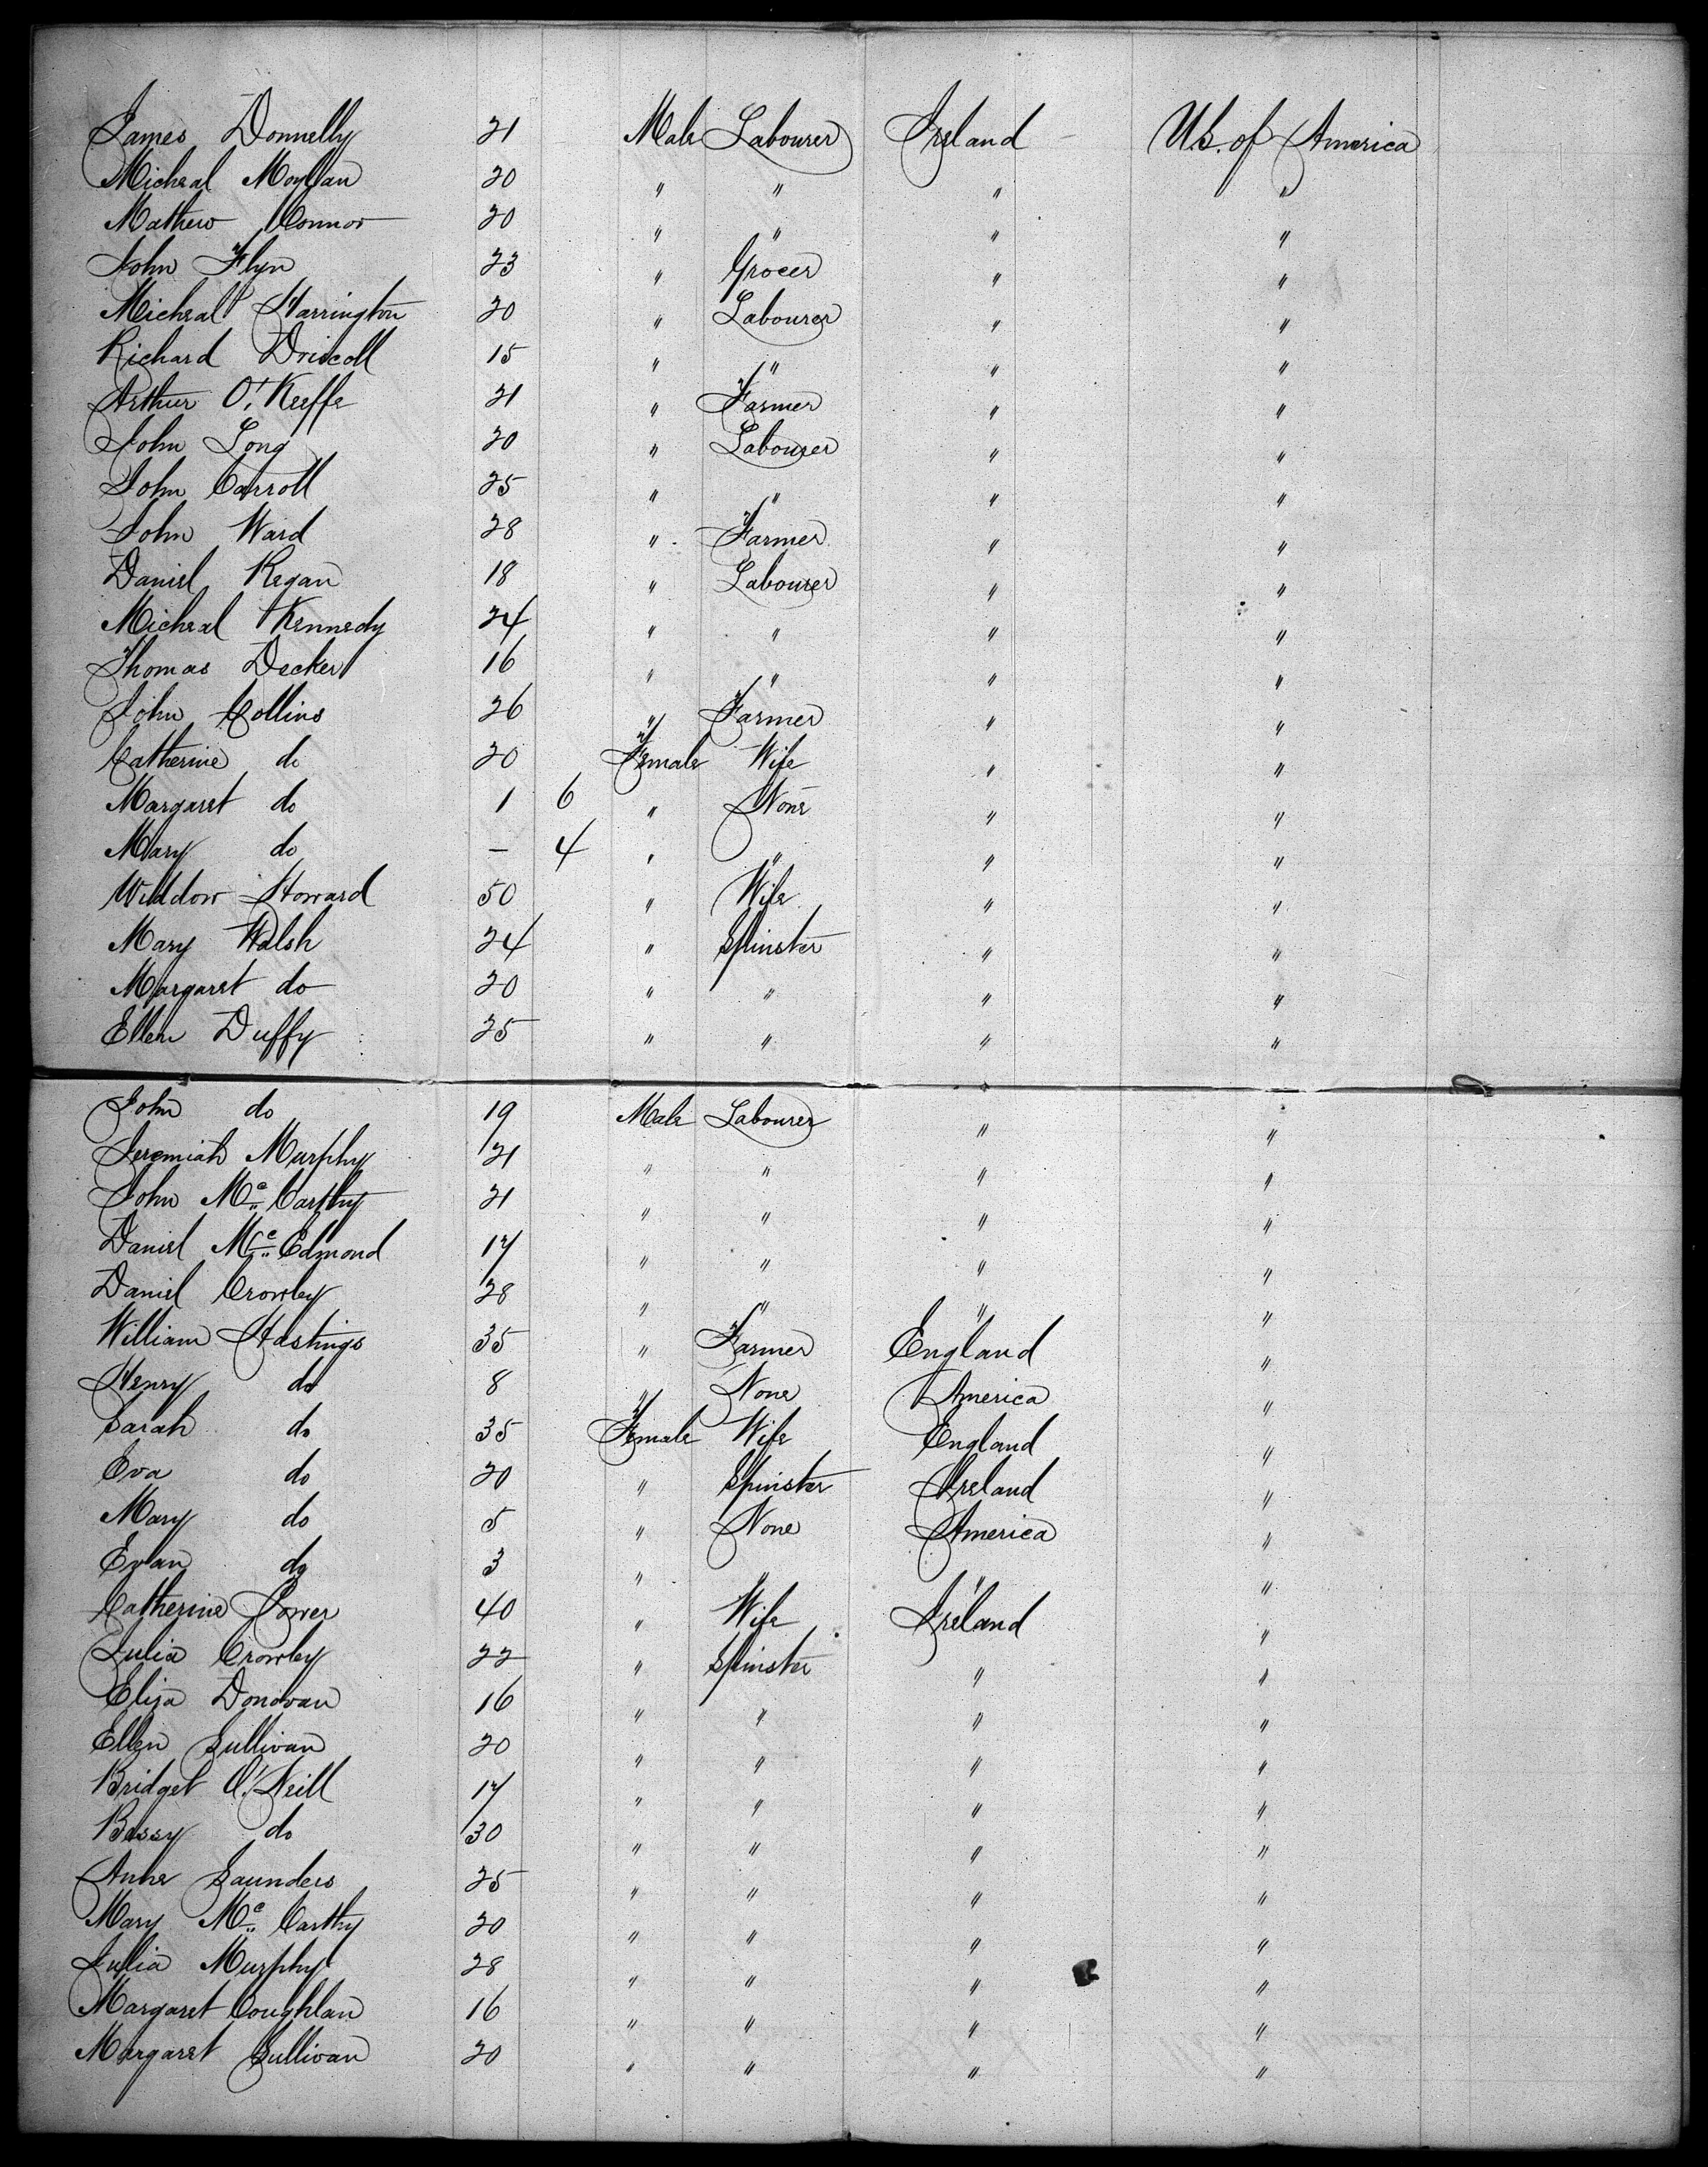 James Donnelly 21 Male Labourer Ireland – U.S. of America
Micheal Moylan 20 " " " "
Mathew Connor 20 " " " "
John Flyn 23 " Grocer " "
Micheal Harrington 20 " Labourer " "
Richard Driscoll 15 " " " "
Arthur O'Keeffe 21 " Farmer " "
John Long 20 " Labourer " "
John Carroll 25 " " " "
John Ward 28 " Farmer " "
Daniel Regan 18 " Labourer " "
Micheal Kennedy 24 " " " "
Thomas Decker 16 " " " "
John Collins 26 " Farmer " "
Catherine do 20 Female Wife " "
Margaret do 1 6 " None " "
Mary do – 4 " " " "
Widdow Howard 50 " Wife " "
Mary Walsh 24 " Spinster " "
Margaret do 20 " " " "
Ellen Duffy 25 " " " "
John do 19 Male Labourer " "
Jeremiah Murphy 21 " " " "
John Mc Carthy 21 " " " "
Daniel Mc Edmond 17 " " " "
Daniel Crowley 28 " " " "
William Hastings 35 " Farmer England "
Henry do 8 " None America "
Sarah do 35 Female Wife England "
Eva do 20 " Spinster Ireland "
Mary do 5 " None America "
Evan do 3 " " " "
Catherine Power 40 " Wife Ireland "
Julia Crowley 22 " Spinster " "
Eliza Donovan 16 " " " "
Ellen Sullivan 20 " " " "
Bridget O'Neill 17 " " " "
Bessy do 30 " " " "
Anne Saunders 25 " " " "
Mary Mc Carthy 20 " " " "
Julia Murphy 28 " " " "
Margaret Coughlan 16 " " " "
Margaret Sullivan 20 " " " "